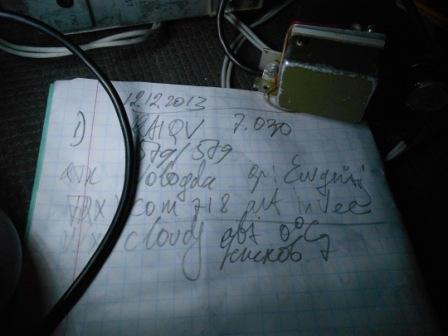 12.12.2013
1) RA1QV 7.030
579/579
QTH Vologda op: Evgenij
TRX: Icom 718 ant inVee
WX: cloudy abt 0°C